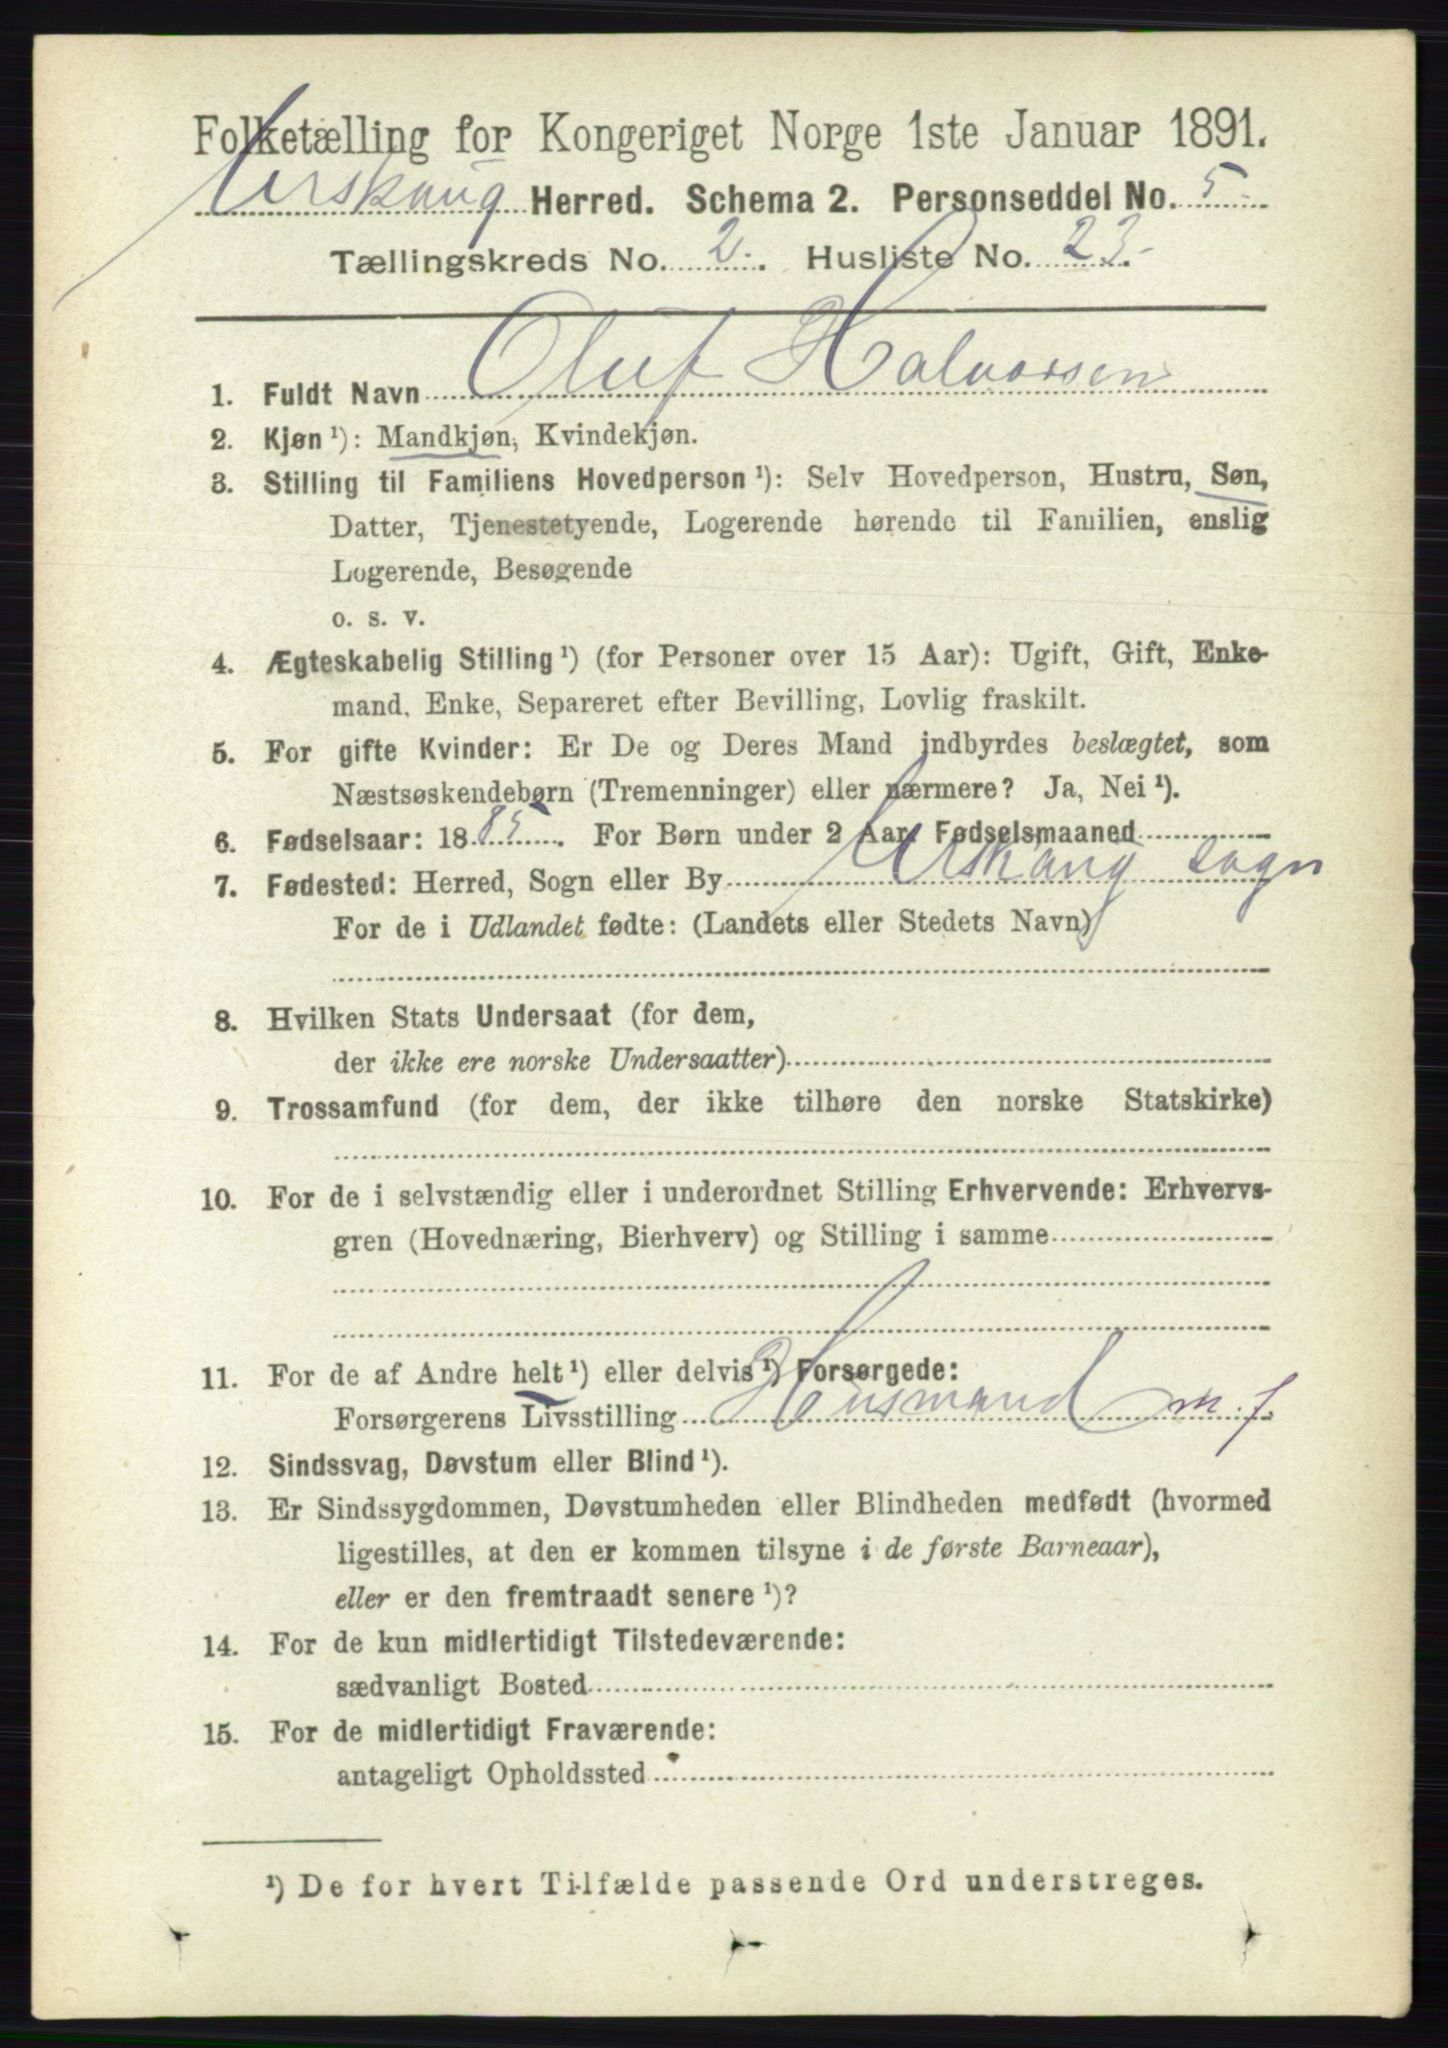 Folketælling for Kongeriget Norge 1ste Januar 1891.
Urskaug Herred. Schema 2. Personseddel No. 5
Tællingskreds No. 2. Husliste No. 23.
1. Fuldt Navn Oluf Halvorsen
2. Kjøn ¹): Mandkjøn, Kvindekjøn.
3. Stilling til Familiens Hovedperson ¹): Selv Hovedperson, Hustru, Søn,
Datter, Tjenestetyende, Logerende hørende til Familien, enslig
Logerende, Besøgende
o. s. v.
4. Ægteskabelig Stilling ¹) (for Personer over 15 Aar): Ugift, Gift, Enke-
mand, Enke, Separeret efter Bevilling, Lovlig fraskilt.
5. For gifte Kvinder: Er De og Deres Mand indbyrdes beslægtet, som
Næstsøskendebørn (Tremenninger) eller nærmere? Ja, Nei ¹).
6. Fødselsaar: 1885. For Børn under 2 Aar, Fødselsmaaned
7. Fødested: Herred, Sogn eller By Urskaug sogn
For de i Udlandet fødte: (Landets eller Stedets Navn)
8. Hvilken Stats Undersaat (for dem,
der ikke ere norske Undersaatter)
9. Trossamfund (for dem, der ikke tilhøre den norske Statskirke)
10. For de i selvstændig eller i underordnet Stilling Erhvervende: Erhvervs-
gren (Hovednæring, Bierhverv) og Stilling i samme
11. For de af Andre helt ¹) eller delvis ¹) Forsørgede:
Forsørgerens Livsstilling Husmand m. f.
12. Sindssvag, Døvstum eller Blind ¹).
13. Er Sindssygdommen, Døvstumheden eller Blindheden medfødt (hvormed
ligestilles, at den er kommen tilsyne i de første Barneaar),
eller er den fremtraadt senere ¹)?
14. For de kun midlertidigt Tilstedeværende:
sædvanligt Bosted
15. For de midlertidigt Fraværende:
antageligt Opholdssted
¹) De for hvert Tilfælde passende Ord understreges.